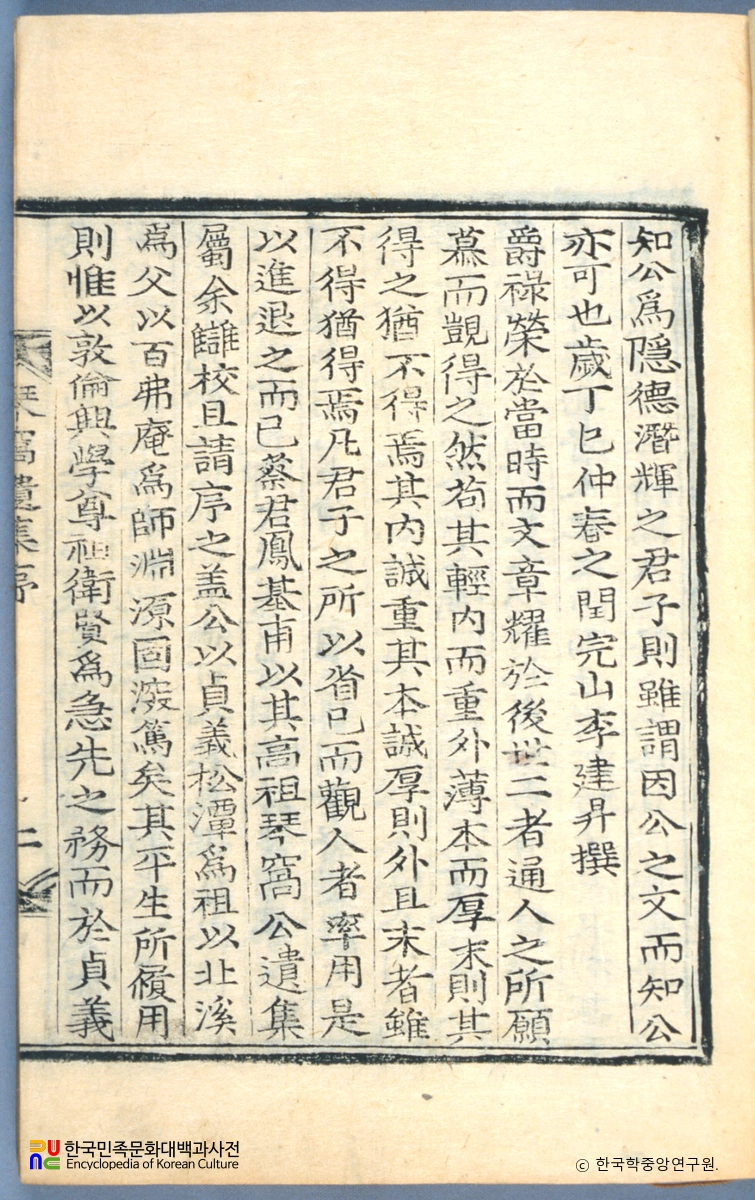 知公爲隱德潛輝之君子則雖謂因公之文而知公
亦可也歲丁巳仲春之閏完山李建昇撰
爵祿榮於當時而文章耀於後世二者通人之所願
慕而覬得之然苟其輕內而重外薄本而厚末則其
得之猶不得焉其內誠重其本誠厚則外且末者雖
不得猶得焉凡君子之所以省已而觀人者率用是
以進退之而已蔡君鳳基甫以其高祖琴窩公遺集
屬余讎校且請序之盖公以貞義松潭爲祖以北溪
爲父以百弗庵爲師淵源固深篤矣其平生所履用
則惟以敦倫興學尊祖衛賢爲急先之務而於貞義
琴窩遺集序
二
한국민족문화대백과사전
Encyclopedia of Korean Culture
ⓒ 한국학중앙연구원.